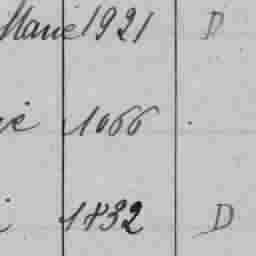 Marie 1921 D
ie 1066
1832 D